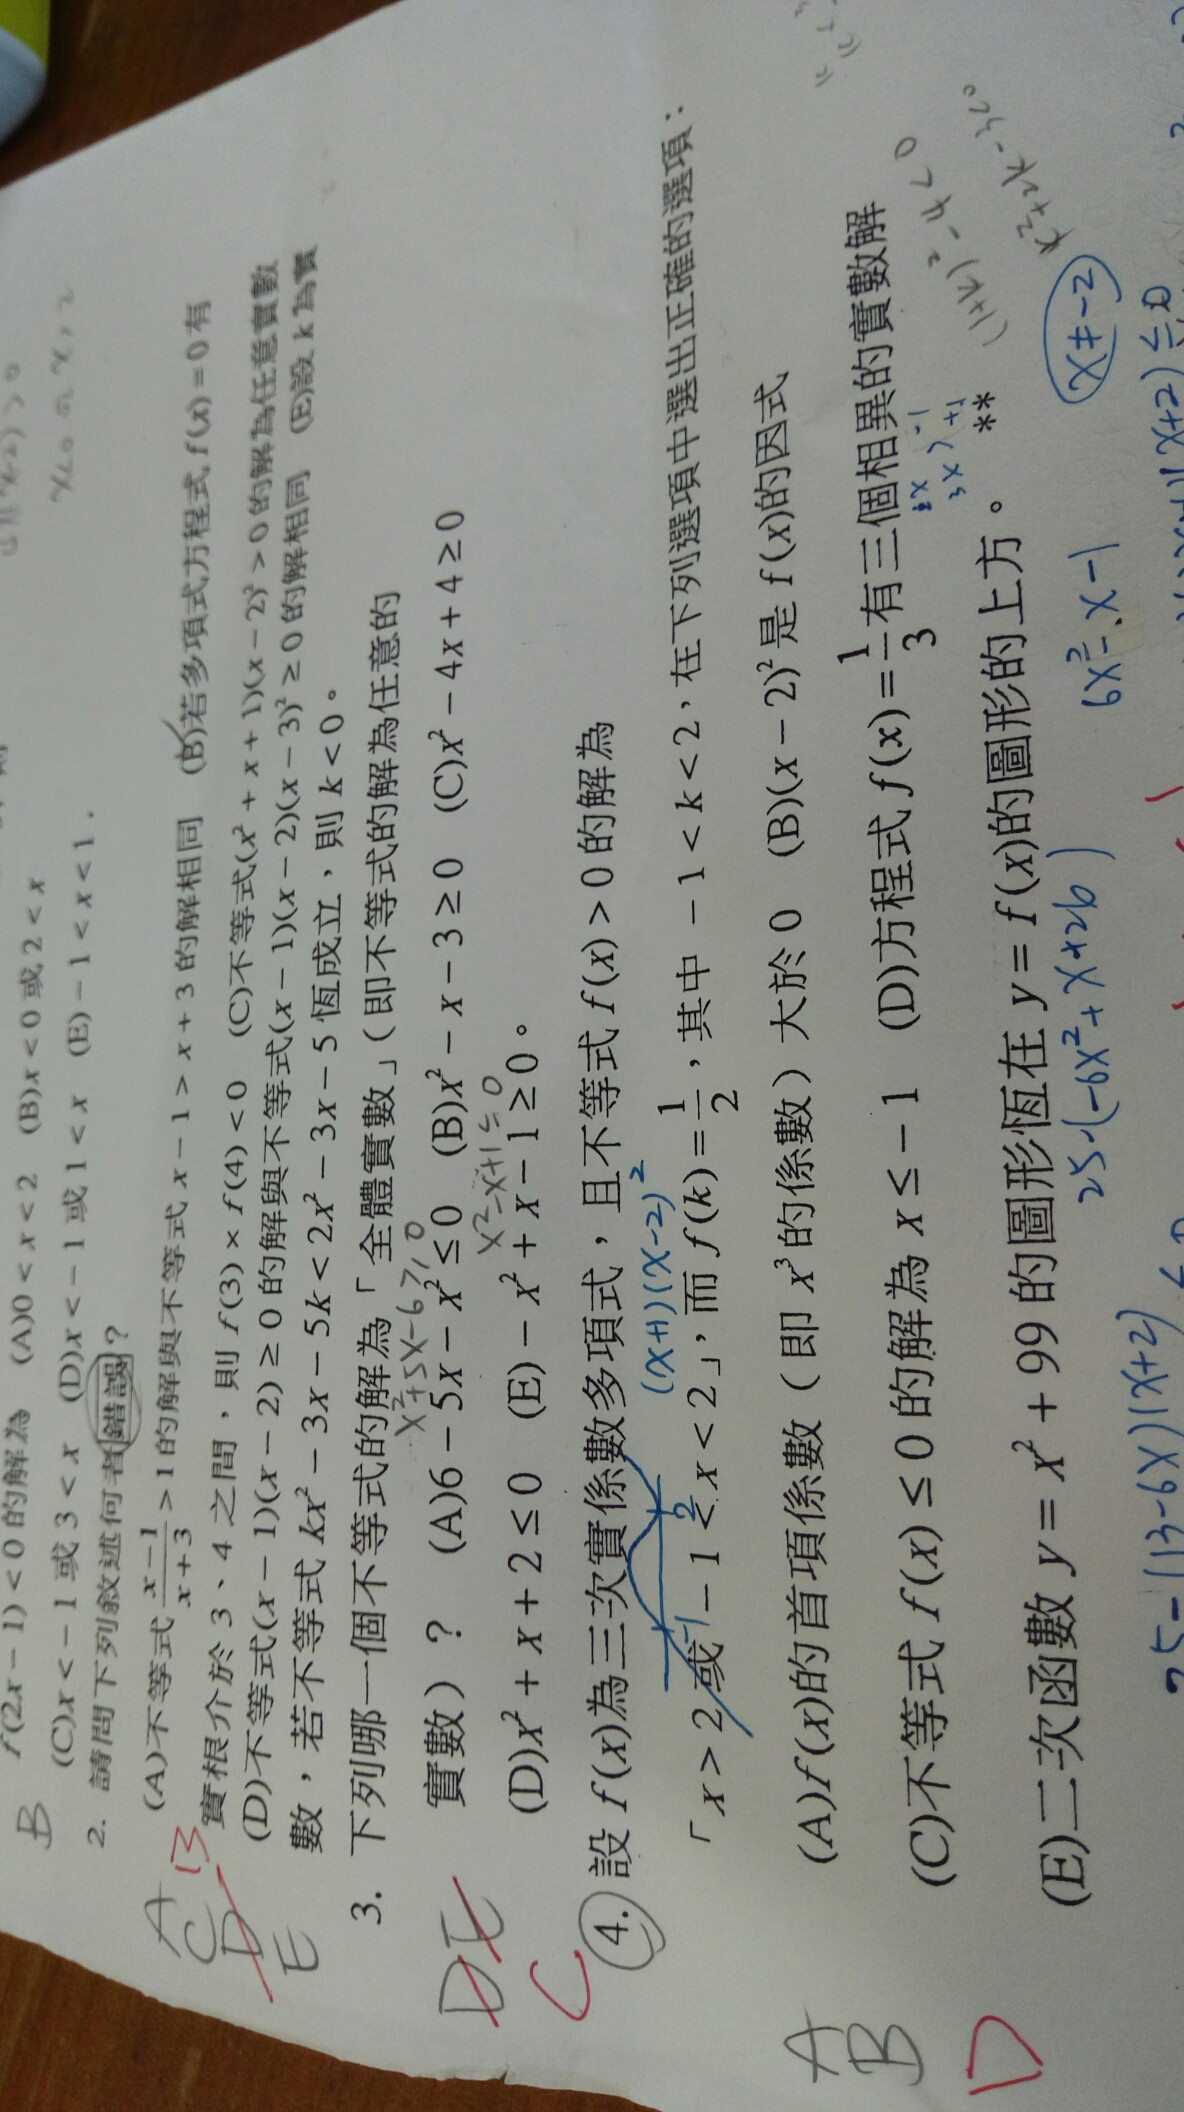 f(2x-1)<0的解為 (A)0<x<2 (B)x<0或2<x
(C)x<-1或3<x (D)x<-1或1<x (E)-1<x<1.
B
2. 請問下列敘述何者錯誤?
(A)不等式 (x-1)/(x+3) >1的解與不等式 x-1>x+3的解相同 (B)若多項式方程式f(x)=0有
實根介於3、4之間,則f(3)×f(4)<0 (C)不等式(x²+x+1)(x-2)²>0的解為任意實數
(D)不等式(x-1)(x-2)≥0的解與不等式(x-1)(x-2)(x-3)²≥0的解相同 (E)設k為實
數,若不等式kx²-3x-5k<2x²-3x-5恆成立,則k<0。
A
C
B
D
E
3. 下列哪一個不等式的解為「全體實數」(即不等式的解為任意的
實數)? (A)6-5x-x²≤0 (B)x²-x-3≥0 (C)x²-4x+4≥0
x²+5x-6≥0
(D)x²+x+2≤0 (E)-x²+x-1≥0。
x²-x+1≤0
DE
C
4. 設f(x)為三次實係數多項式,且不等式f(x)>0的解為
(x+1)(x-2)²
「x>2或-1<x<2」,而f(k)=1/2,其中-1<k<2,在下列選項中選出正確的選項:
-1 2
(A)f(x)的首項係數(即x³的係數)大於0 (B)(x-2)²是f(x)的因式
(C)不等式f(x)≤0的解為x≤-1 (D)方程式f(x)=1/3有三個相異的實數解
(E)二次函數y=x²+99的圖形恆在y=f(x)的圖形的上方。 **
A
B
D
x≠-2
6x²-x-1
25·(-6x²+x+26)